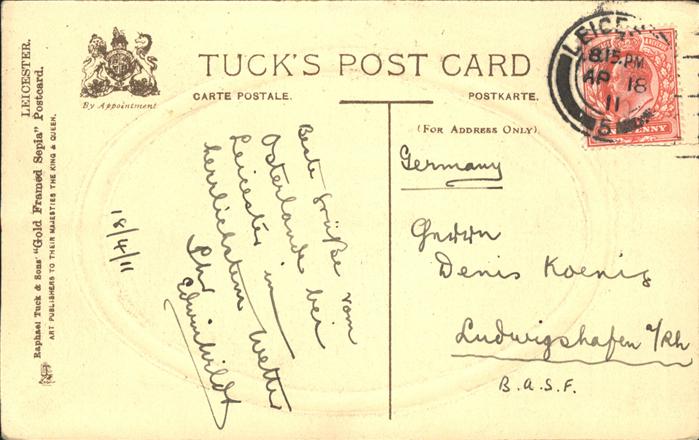 LEICESTER.
Raphael Tuck & Sons' "Gold Framed Sepia" Postcard.
ART PUBLISHERS TO THEIR MAJESTIES THE KING & QUEEN.
By Appointment
TUCK'S POST CARD
CARTE POSTALE.
POSTKARTE.
(FOR ADDRESS ONLY).
8.15 PM
AP 18
11
PENNY
18/4/11
Beste Grüße vom
Osterlande bei
Leicester in
herrlichstem Wetter
Ihr
Edwin Wildt
Germany
Herrn
Denis Koenig
Ludwigshafen a/Rh
B.A.S.F.